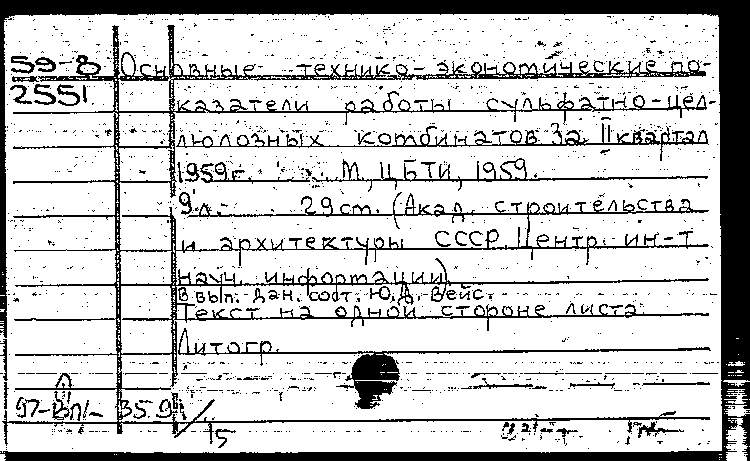 59-8 Основные технико-экономические по-
2551 казатели работы сульфатно-цел-
люлозных комбинатов за II квартал
1959г. М, ЦБТИ, 1959.
9 л. 29 см. (Акад. строительства
и архитектуры СССР. Центр. ин-т
науч. информации)
В вып. дан. сост. Ю.Д. Вейс.
Текст на одной стороне листа
Литогр.
35.91
15